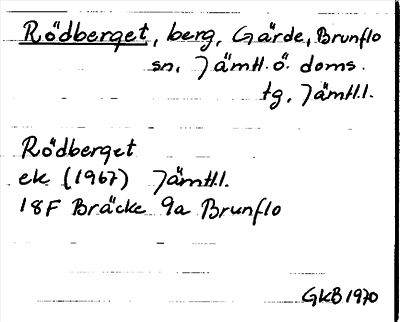 Rödberget, berg, Gärde, Brunflo
sn. Jämtl. ö. doms.
tg. Jämtl.l.
Rödberget
ek (1967) Jämtl.l.
18F Bräcke 9a Brunflo
GKB 1970